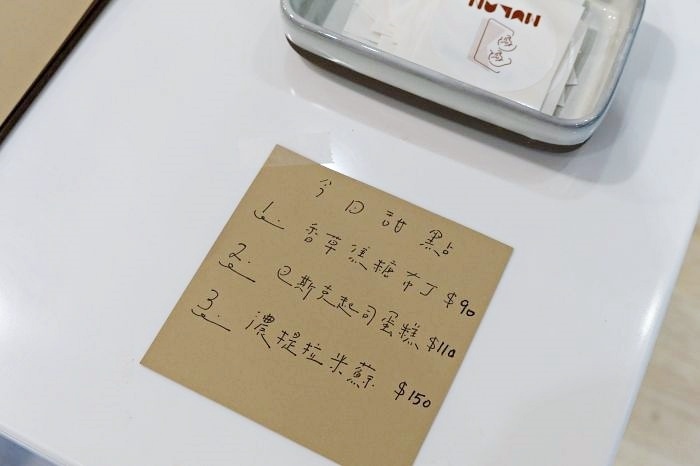 今日甜點
1. 香草焦糖布丁 $90
2. 巴斯克起司蛋糕 $110
3. 濃提拉米蘇 $150